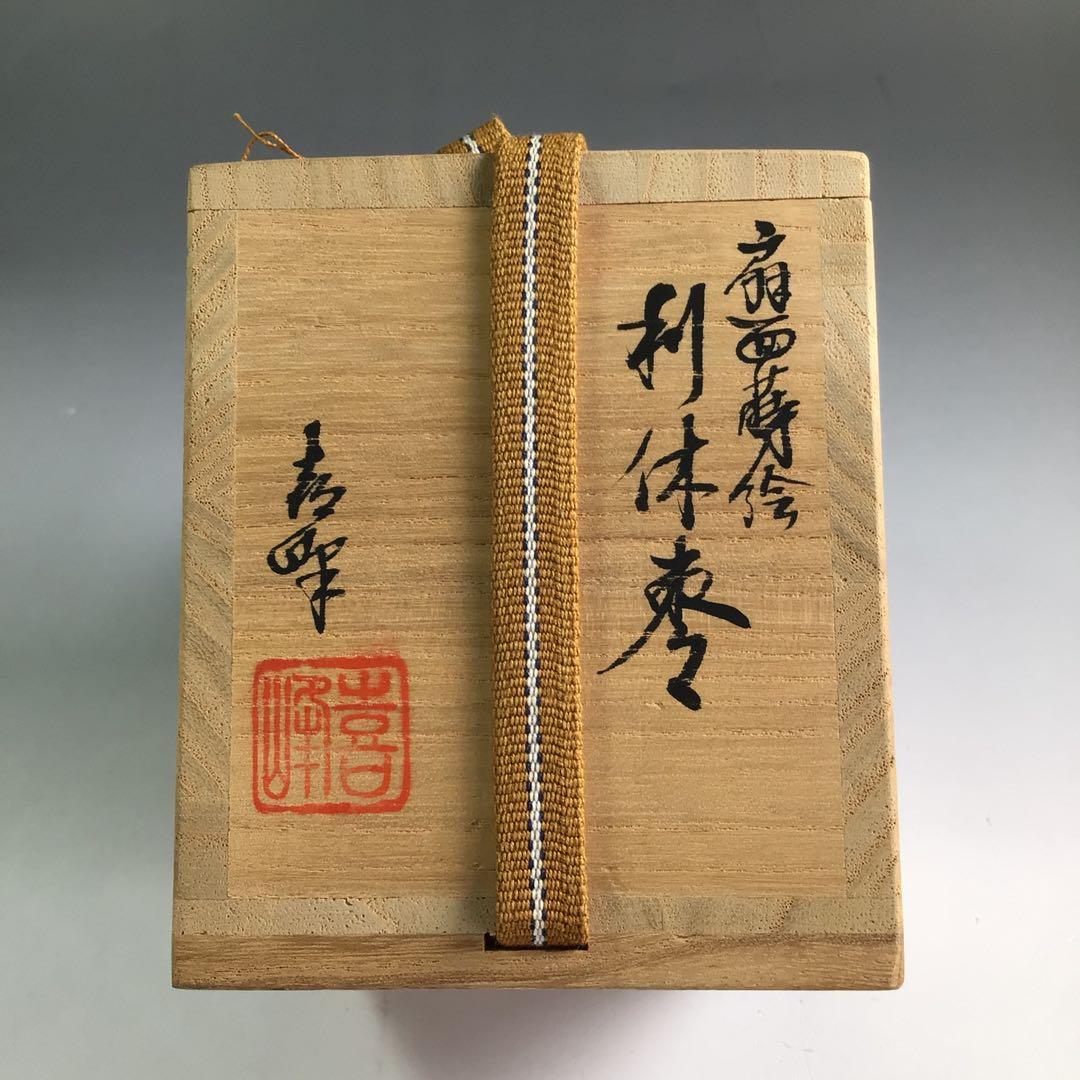 扇面蒔絵
利休棗
喜峰
喜峰